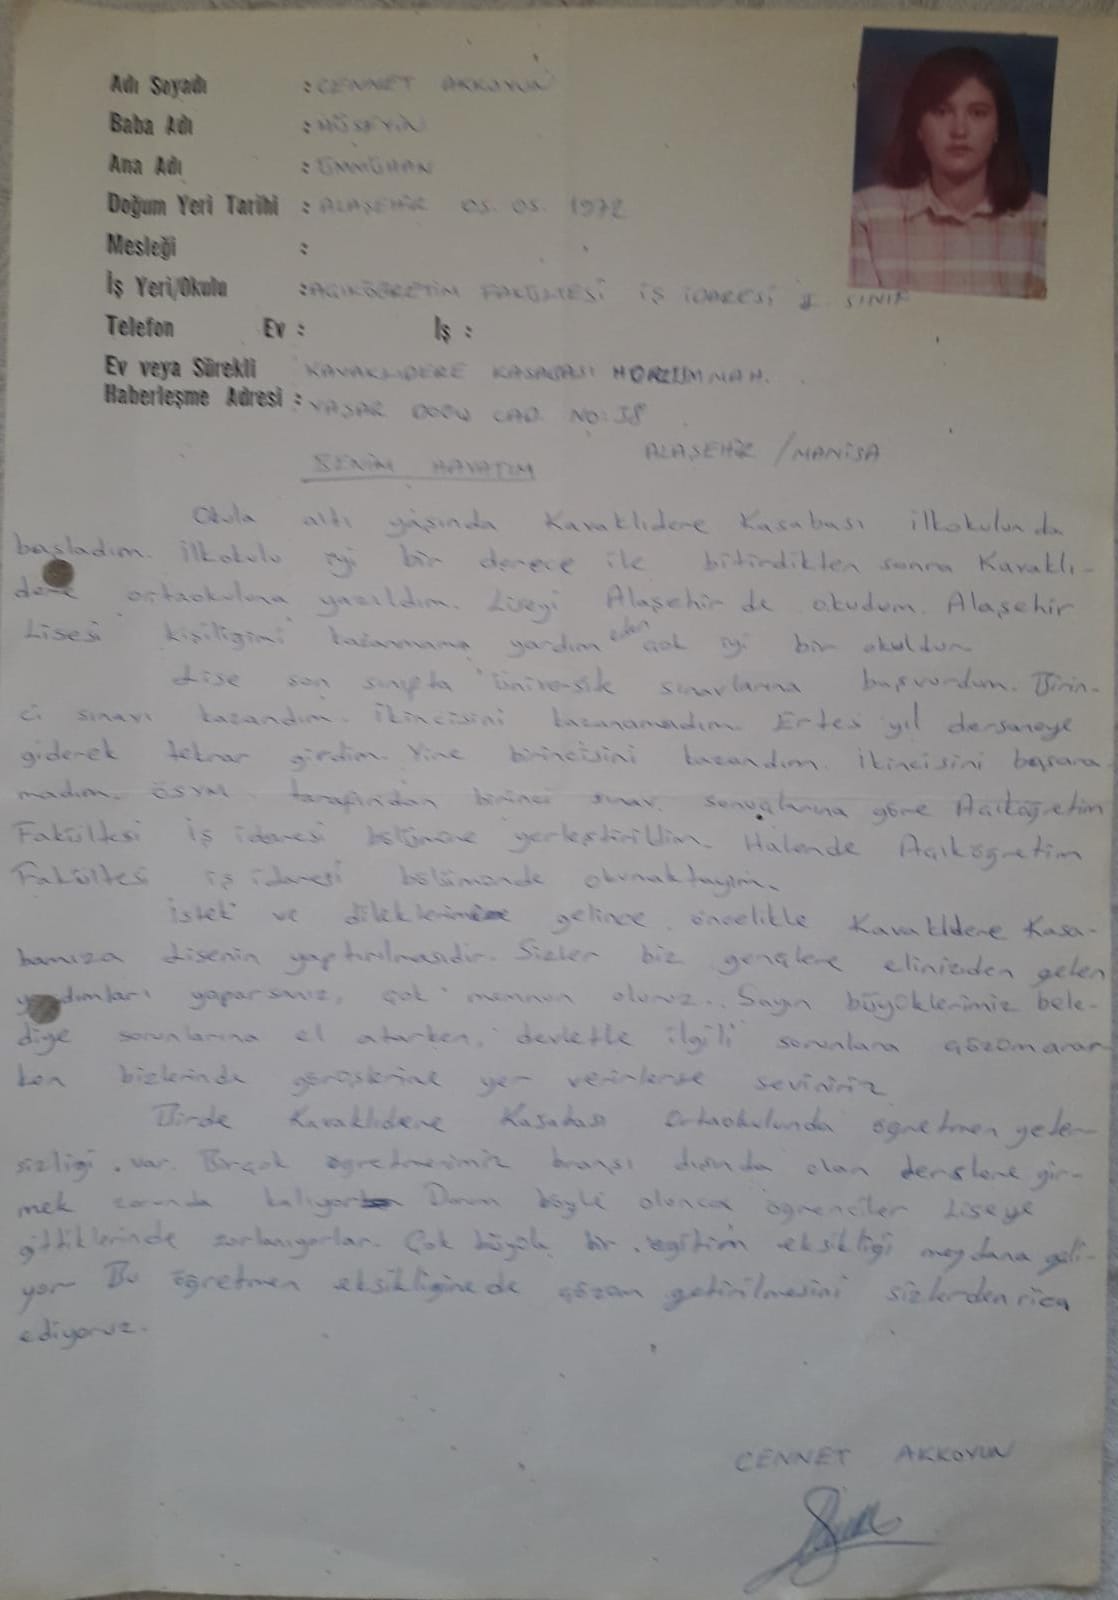 Adı Soyadı : CENNET AKKOYUN
Baba Adı : HÜSEYİN
Ana Adı : ÜMMÜHAN
Doğum Yeri Tarihi : ALAŞEHİR 05. 05. 1972
Mesleği :
İş Yeri/Okulu : AÇIKÖĞRETİM FAKÜLTESİ İŞ İDARESİ II. SINIF
Telefon Ev : İş :
Ev veya Sürekli KAVAKLIDERE KASABASI HORZUM MAH.
Haberleşme Adresi : YAŞAR DOĞU CAD. NO: 38
ALAŞEHİR / MANİSA
BENİM HAYATIM
Okula altı yaşında Kavaklıdere Kasabası ilkokulunda
başladım. İlkokulu iyi bir derece ile bitirdikten sonra Kavaklı-
dere ortaokuluna yazıldım. Liseyi Alaşehir de okudum. Alaşehir
Lisesi kişiliğimi kazanmama yardım eden çok iyi bir okuldur.
Lise son sınıfta üniversite sınavlarına başvurdum. Birin-
ci sınavı kazandım. İkincisini kazanamadım. Ertesi yıl dersaneye
giderek tekrar girdim. Yine birincisini kazandım. İkincisini başara
madım. ÖSYM tarafından birinci sınav sonuçlarına göre Açıköğretim
Fakültesi İş idaresi bölümüne yerleştirildim. Halende Açıköğretim
Fakültesi iş idaresi bölümünde okumaktayım.
İstek ve dileklerimize gelince öncelikle Kavaklıdere Kasa-
bamıza Lisenin yaptırılmasıdır. Sizler biz gençlere elinizden gelen
yardımları yaparsanız, çok memnun oluruz. Sayın büyüklerimiz bele-
diye sorunlarına el atarken, devletle ilgili sorunlara çözüm arar-
ken bizlerinde görüşlerine yer verirlerse seviniriz
Birde Kavaklıdere Kasabası Ortaokulunda öğretmen yeter-
sizliği var. Birçok öğretmenimiz branşı dışında olan derslere gir-
mek zorunda kalıyor. Durum böyle olunca öğrenciler Liseye
gittiklerinde zorlanıyorlar. Çok büyük bir eğitim eksikliği meydana geli-
yor Bu öğretmen eksikliğine de çözüm getirilmesini sizlerden rica
ediyoruz.
CENNET AKKOYUN